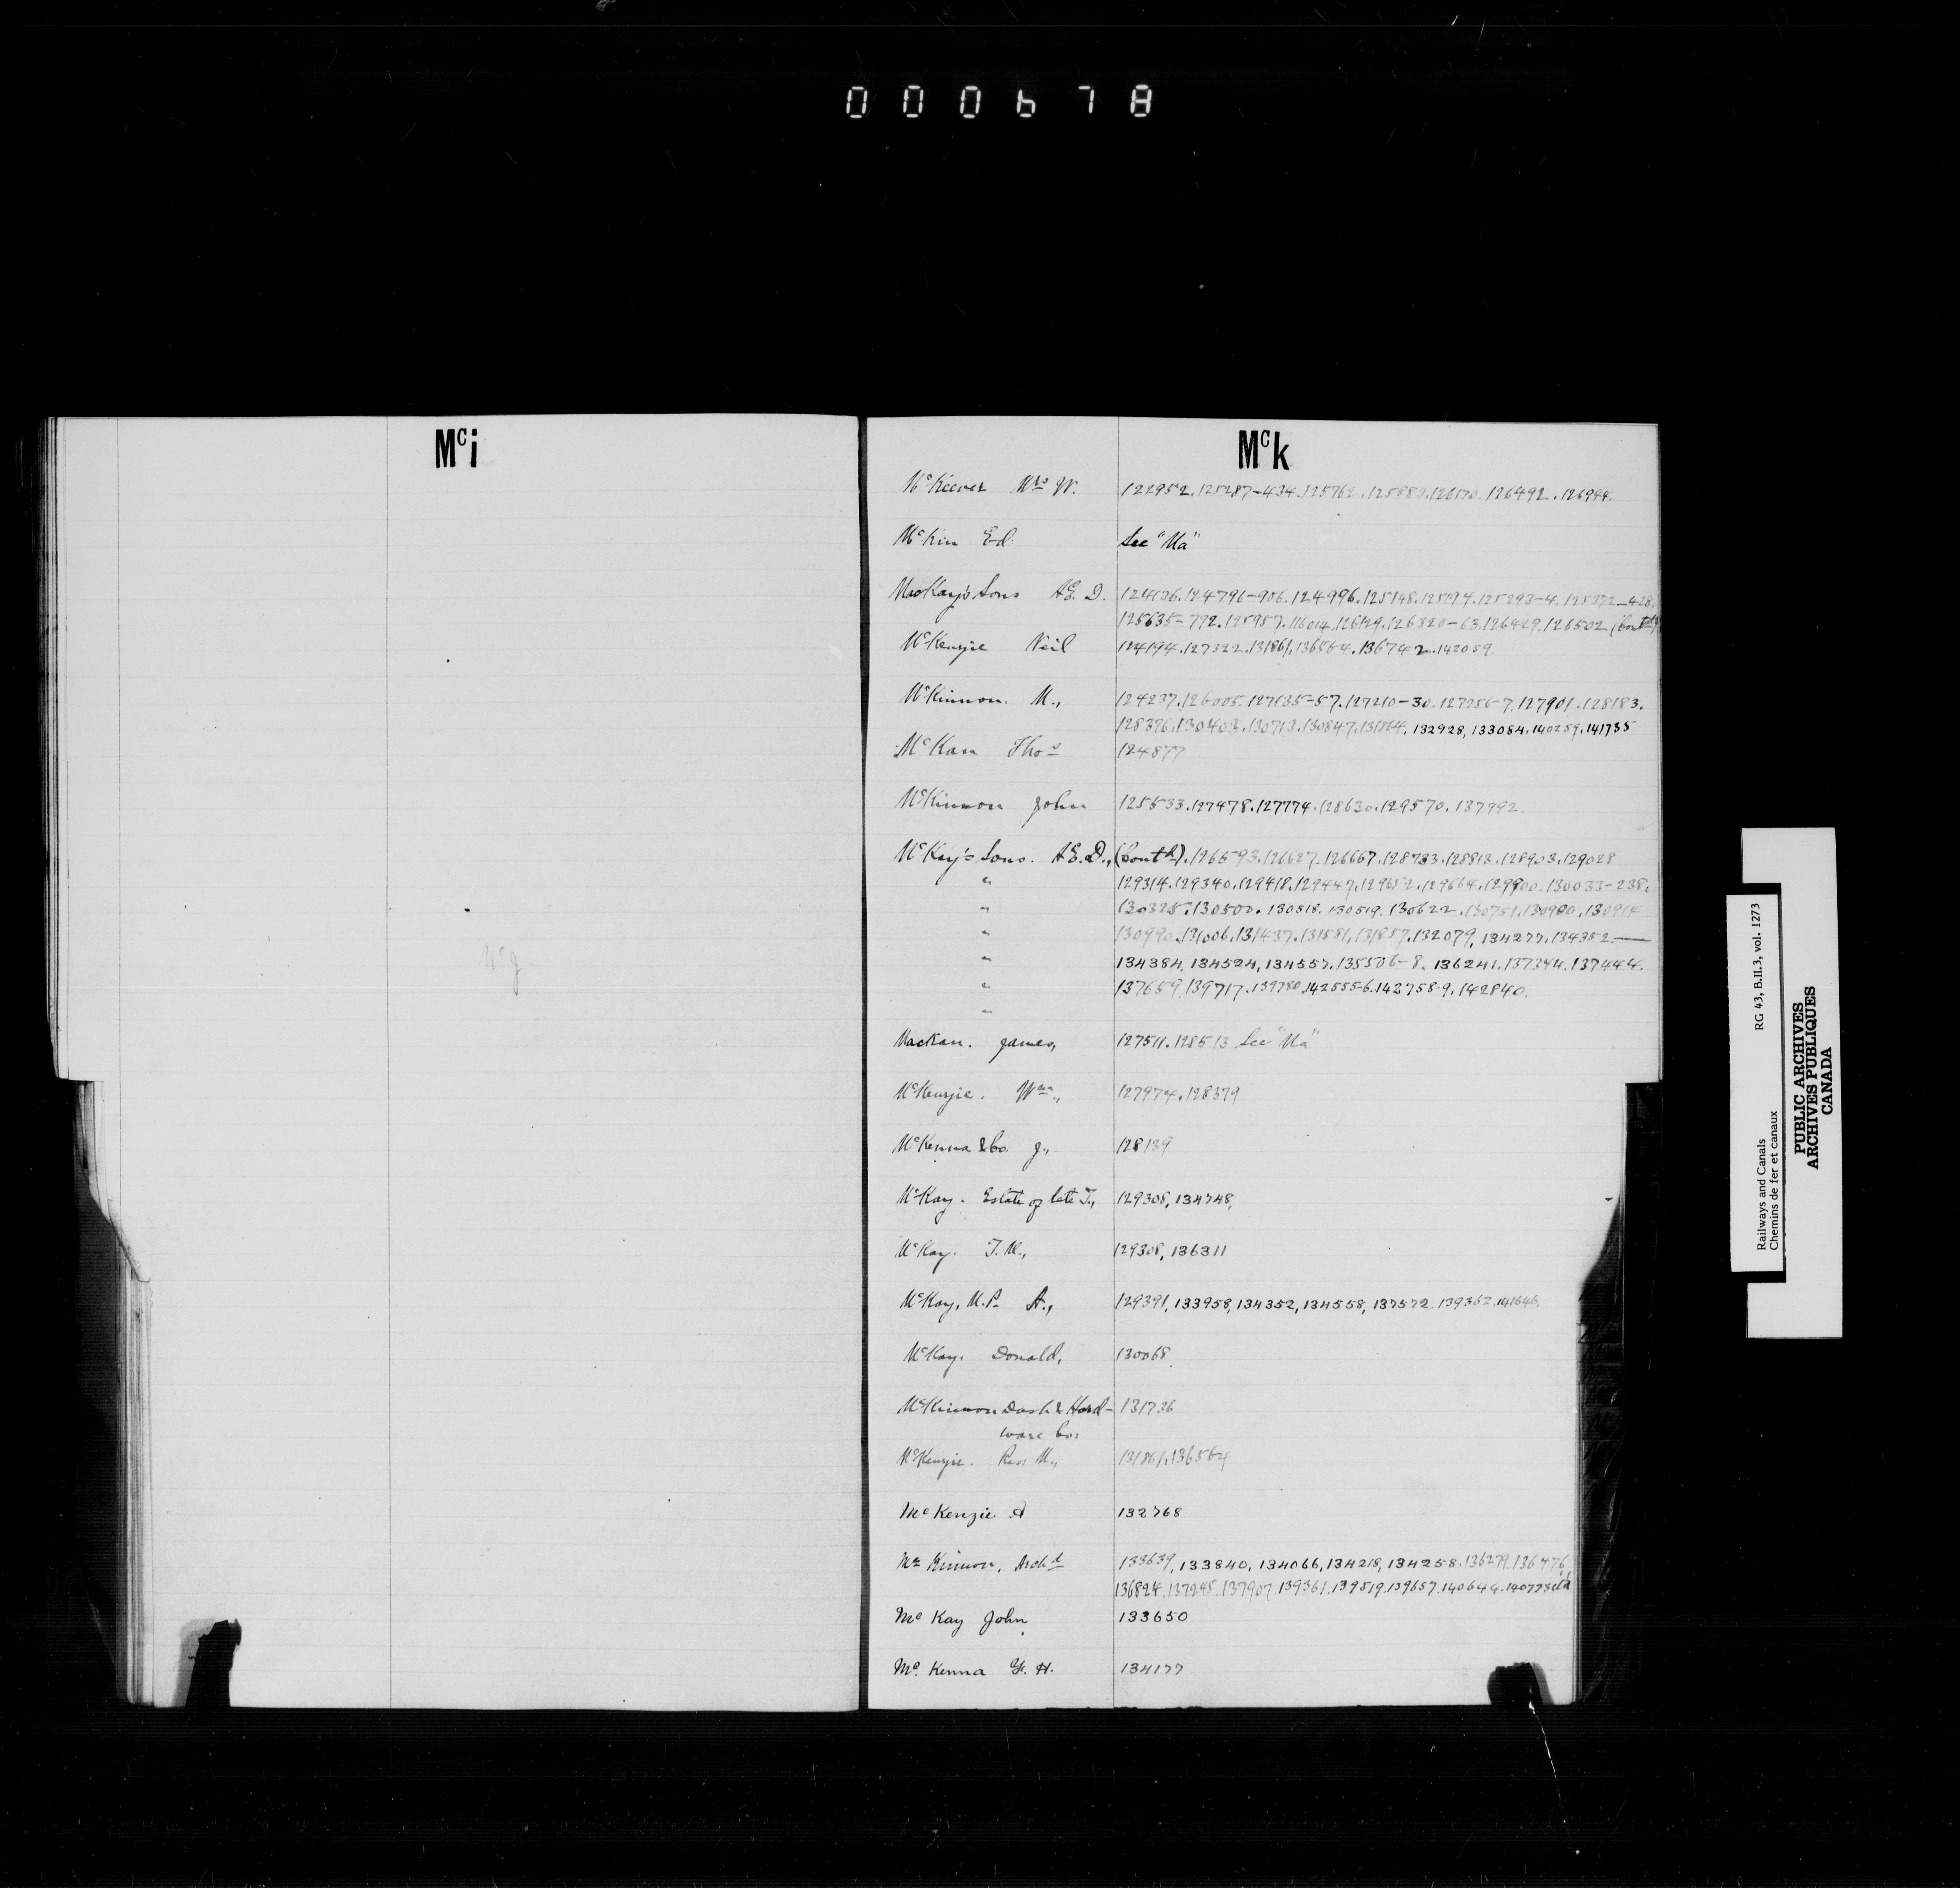 000678
Mci
Mck
McKeever Mrs W. 122952.125287-434.125762.125880.126170.126492.126994.
McKim Ed. See "Ma"
MacKay's Sons A.E.D. 124636.124796-906.124996.125148.125194.125293-4.125372-428.
125635-772.125957.116014.126129.126320-63.126429.126502 (Contd)
McKenzie Neil 124194.127322.131861.136564.136742.142059.
McKinnon. M., 124237.126005.127135-57.127210-30.127256-7.127901.128183.
128376.130403.130713.130847.131864, 132928, 133084.140259.141755
McKan Thos 124877
McKinnon John 125533.127478.127774.128630.129570.137992.
McKay's Sons. A.E.D., (Contd).126593.126627.126667.128733.128813.128903.129028
" 129314.129340.129418.129447.129652.129664.129900.130033-238.
" 130325.130500.130518.130519.130622.130751.130900.130914
" 130990.131006.131437.131581.131857.132079, 134277.134352.—
" 134384, 134524, 134557.135506-8.136241.137344.137444.
" 137659.139717.139780.142555-6.142758-9.142840.
"
MacKan. James, 127511.128513 See "Ma"
McKenzie. Wm., 127974.128379
McKenna & Co. J., 128139
McKay. Estate of late T., 129308, 134748,
McKay. T. M., 129308, 136311
McKay, M.P. A., 129391, 133958, 134352, 134558, 137572.139362.141646.
McKay. Donald, 130068
McKinnon Dash & Hard- 131736
ware Co.,
McKenzie. Rev. M., 131861.136564
McKenzie A 132768
McKinnon, Archd 133639, 133840, 134066, 134218, 134258.136279.136476.
136824.137245.137907.139361.139519.139657.140644.140773
McKay John 133650
McKenna Y. H. 134177
Mcg
Railways and Canals RG 43, B.II.3, vol. 1273
Chemins de fer et canaux
PUBLIC ARCHIVES
ARCHIVES PUBLIQUES
CANADA